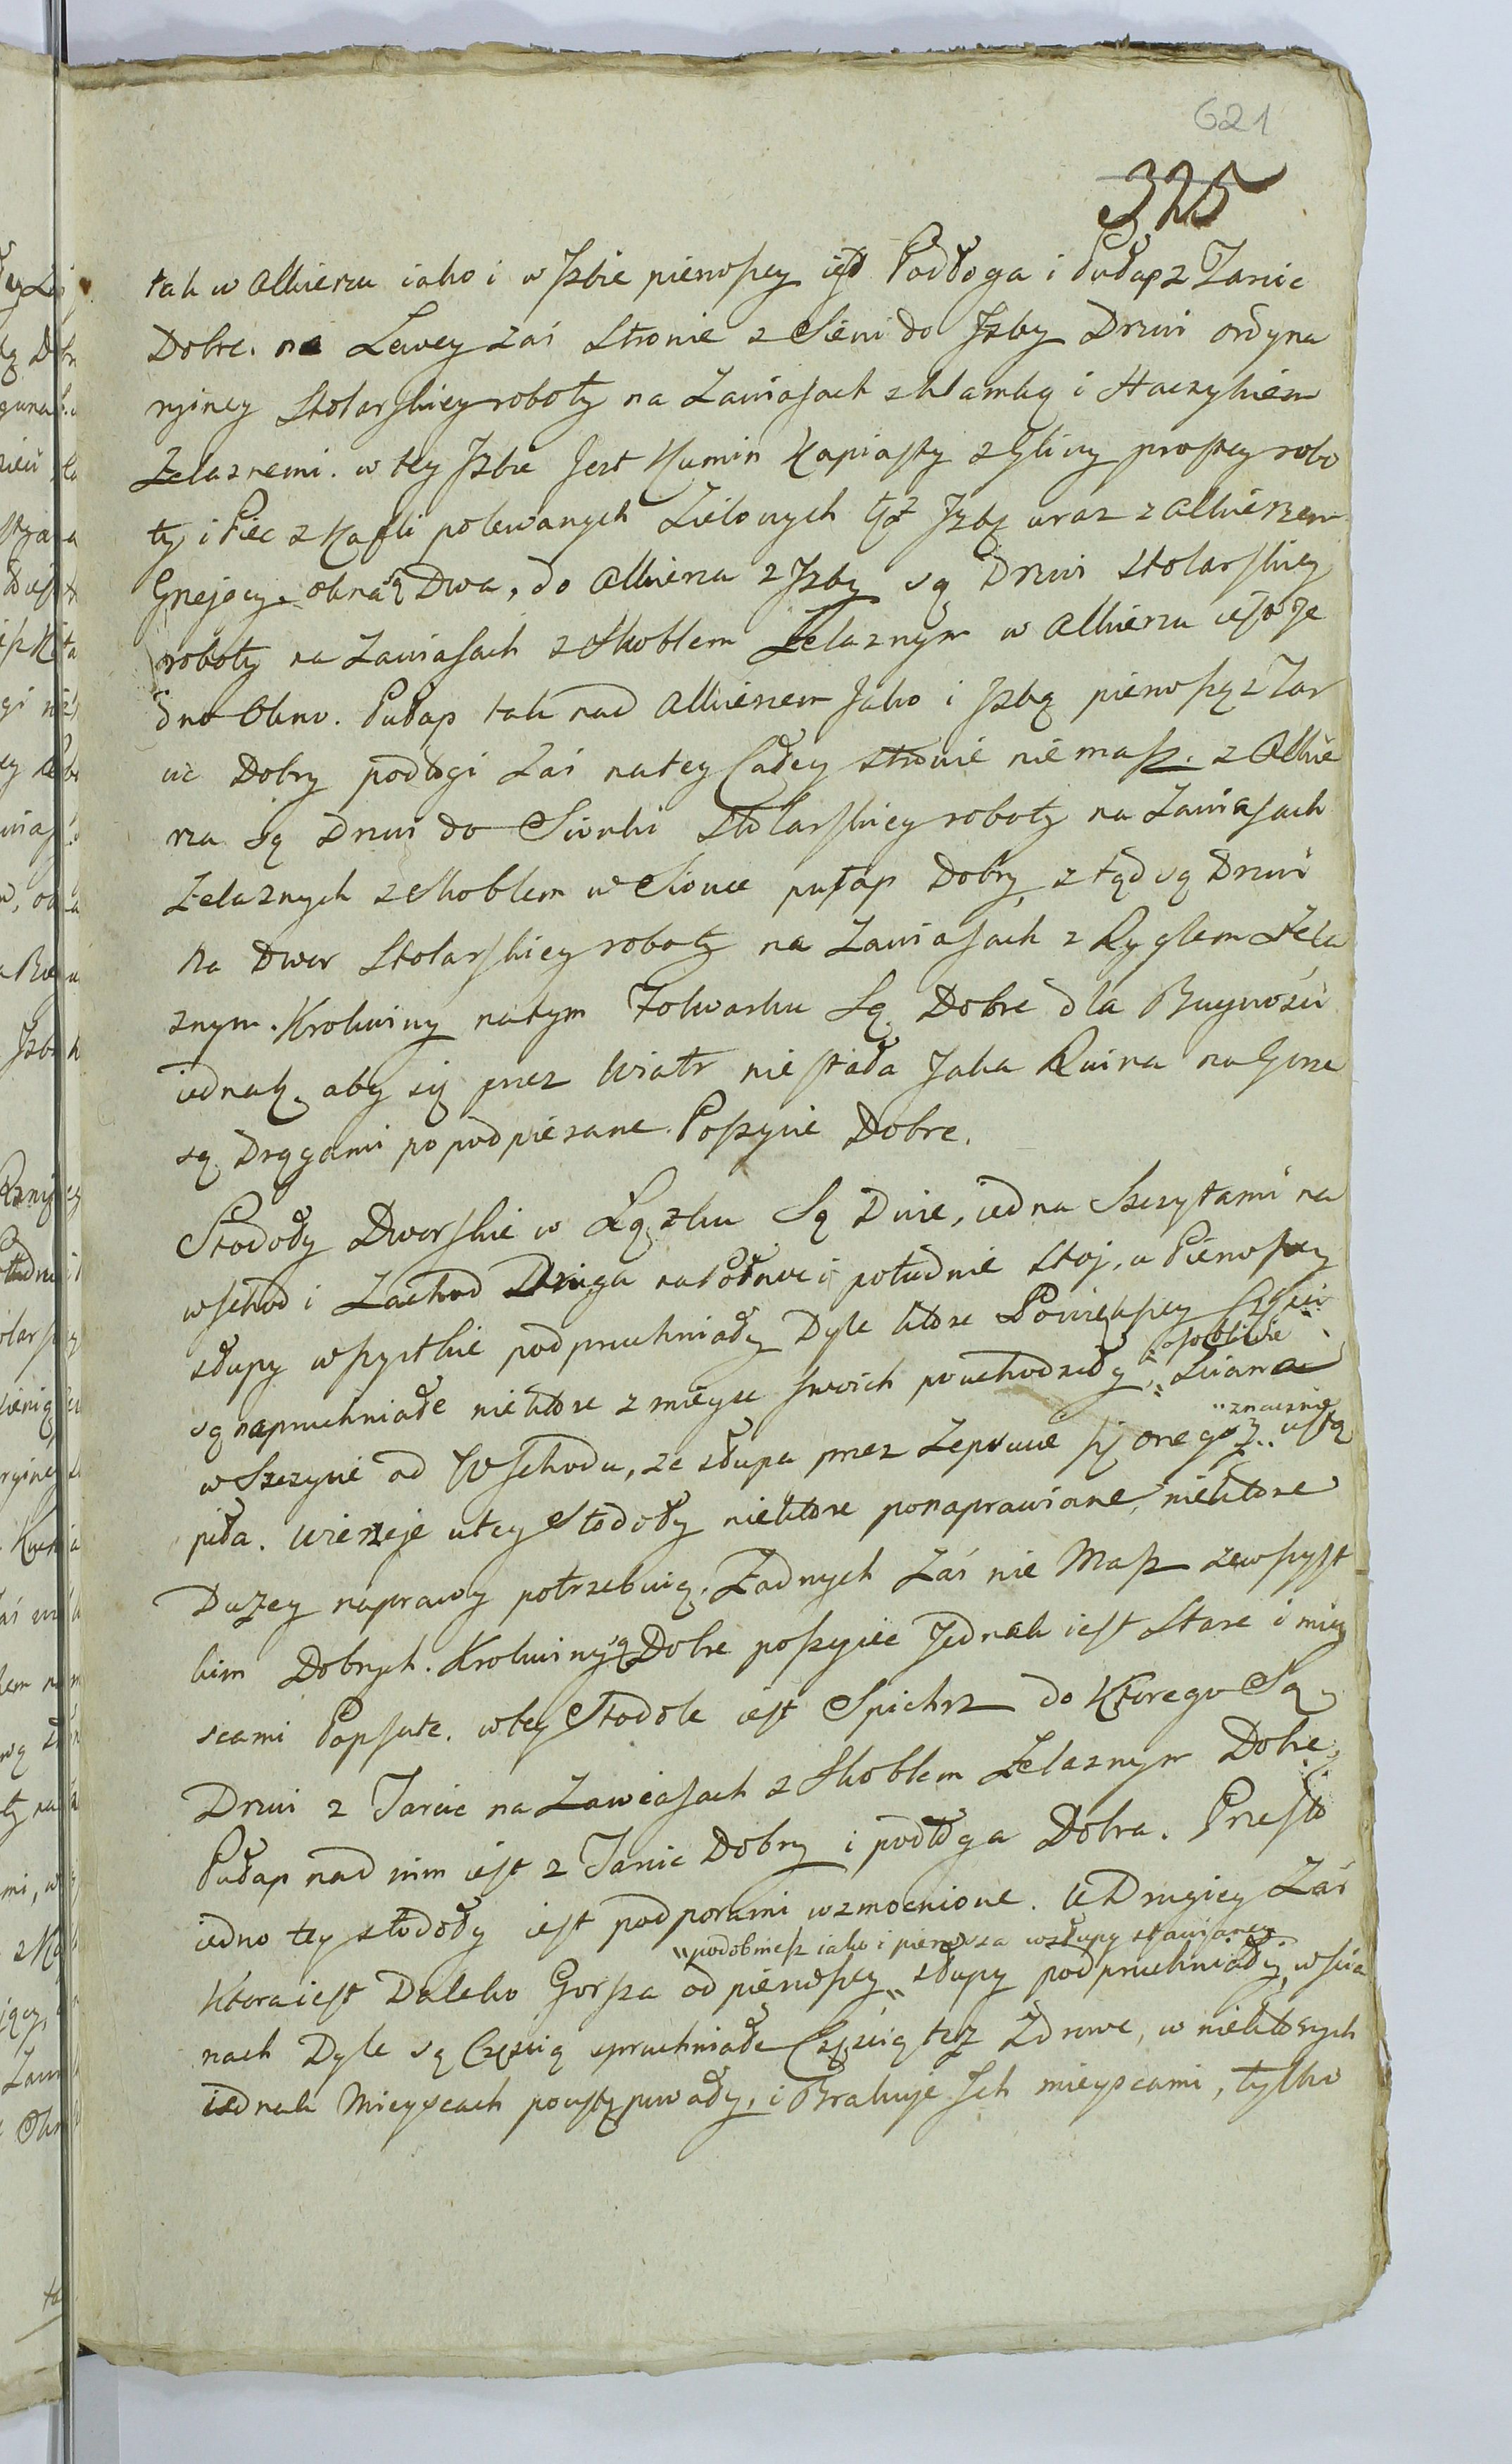 621
325
tak w Alkierzu iako i w Jzbie pierwszey iest Podłoga i Pułap z Tarcic
Dobre. na Lewey zaś Stronie z Sieni do Jzby Drzwi ordyna
ryiney Stolarskiey roboty na Zawiasach z klamką i Haczykiem
Żelaznemi. w tey Jzbie Jest Kumin Kapiasty z Gliny prostey robo
ty i Piec z Kafli polewanych Zielonych tęż Jzbę wraz z Alkierzem
Grzejący. okna są Dwa, do Alkierza z Jzby są Drzwi Stolarskiey
roboty na Zawiasach z Skoblem Żelaznym w Alkierzu iest Je
dno Okno. Pułap tak nad Alkierzem Jako i Jzbą pierwszą z Tar
cic Dobry podłogi Zaś na tey Całey stronie nie masz. z Alkie
rza są Drzwi do Sionki Stolarskiey roboty na Zawiasach
Żelaznych z Skoblem w Sionce pułap Dobry, z tąd są Drzwi
Na Dwor Stolarskiey roboty na Zawiasach z Ryglem Żela
znym. Krokwiny na tym Folwarku Są Dobre dla Buyności
iednak, aby się przez Wiatr nie stała Jaka Ruina na Gorze
są Drągami popodpierane. Poszycie Dobre.
Stodoły Dworskie w Łążku Są Dwie, iedna Szczytami na
wschod i Zachod Druga na Połnoc i południe Stoj, u Pierwszey
słupy wszystkie podpruchniały Dyle ktore Powiększey Części
są napruchniałe niektore z mieysc swoich powychodziły, „osobliwie „Sciana
w Szczycie od Wschodu, ze słupa przez Zepsucie się onegoż „znacznie „ustą
piła. Wierzeje u tey Stodoły niektore ponaprawiane, niektore
Dużey naprawy potrzebuią. Żadnych Zaś nie Masz zewszyst
kim Dobrych. Krokwiny są Dobre poszycie Jednak iest Stare i miey
scami Popsute. w tey Stodole iest Spichrz do Ktorego Są
Drzwi z Tarcic na Zawiasach z Skoblem Żelaznym Dobre,
Pułap nad nim iest z Tarcic Dobry i podłoga Dobra. Przęsło
iedno tey stodoły iest podporami wzmocnione. U Drugiey Zaś
„podobnież iako i pierwsza w słupy stawianey
Ktora iest Daleko Gorsza od pierwszey „ słupy podpruchniały, w ścia
nach Dyle są Częścią spruchniałe Częścią też Zdrowe, w niektorych
iednak Mieyscach poustępowały, i Brakuje Jch mieyscami, tylko